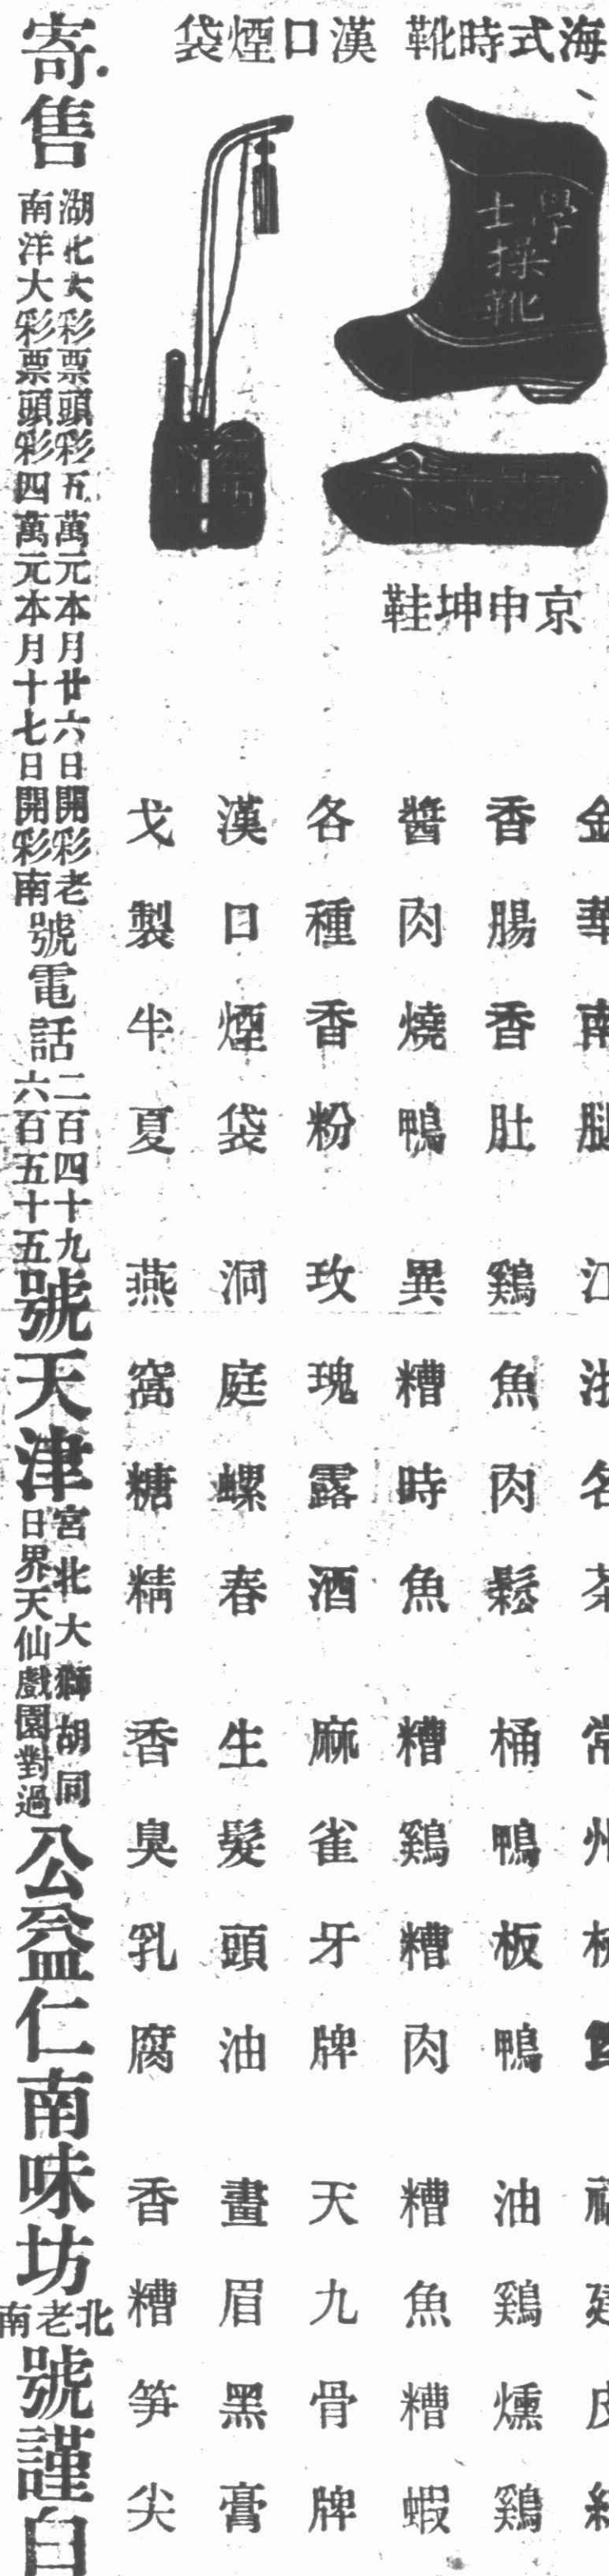 海式時靴
漢口煙袋
學士操靴
京申坤鞋
金華南腿 江浙名茶 常州
香腸香肚 鷄魚肉鬆 桶鴨板鴨 油鷄燻鷄
醬肉燒鴨 異糟時魚 糟鷄糟肉 糟魚糟蝦
各種香粉 玫瑰露酒 麻雀牙牌 天九骨牌
漢口煙袋 洞庭螺春 生髮頭油 畫眉黑膏
戈製半夏 燕窩糖精 香臭乳腐 香糟笋尖
寄售
湖北大彩票頭彩五萬元本月廿六日開彩老
南洋大彩票頭彩四萬元本月十七日開彩南
號電話
二百四十九
六百五十五
號天津
宮北大獅胡同
日界天仙戲園對過
公益仁南味坊
北老南
號謹白